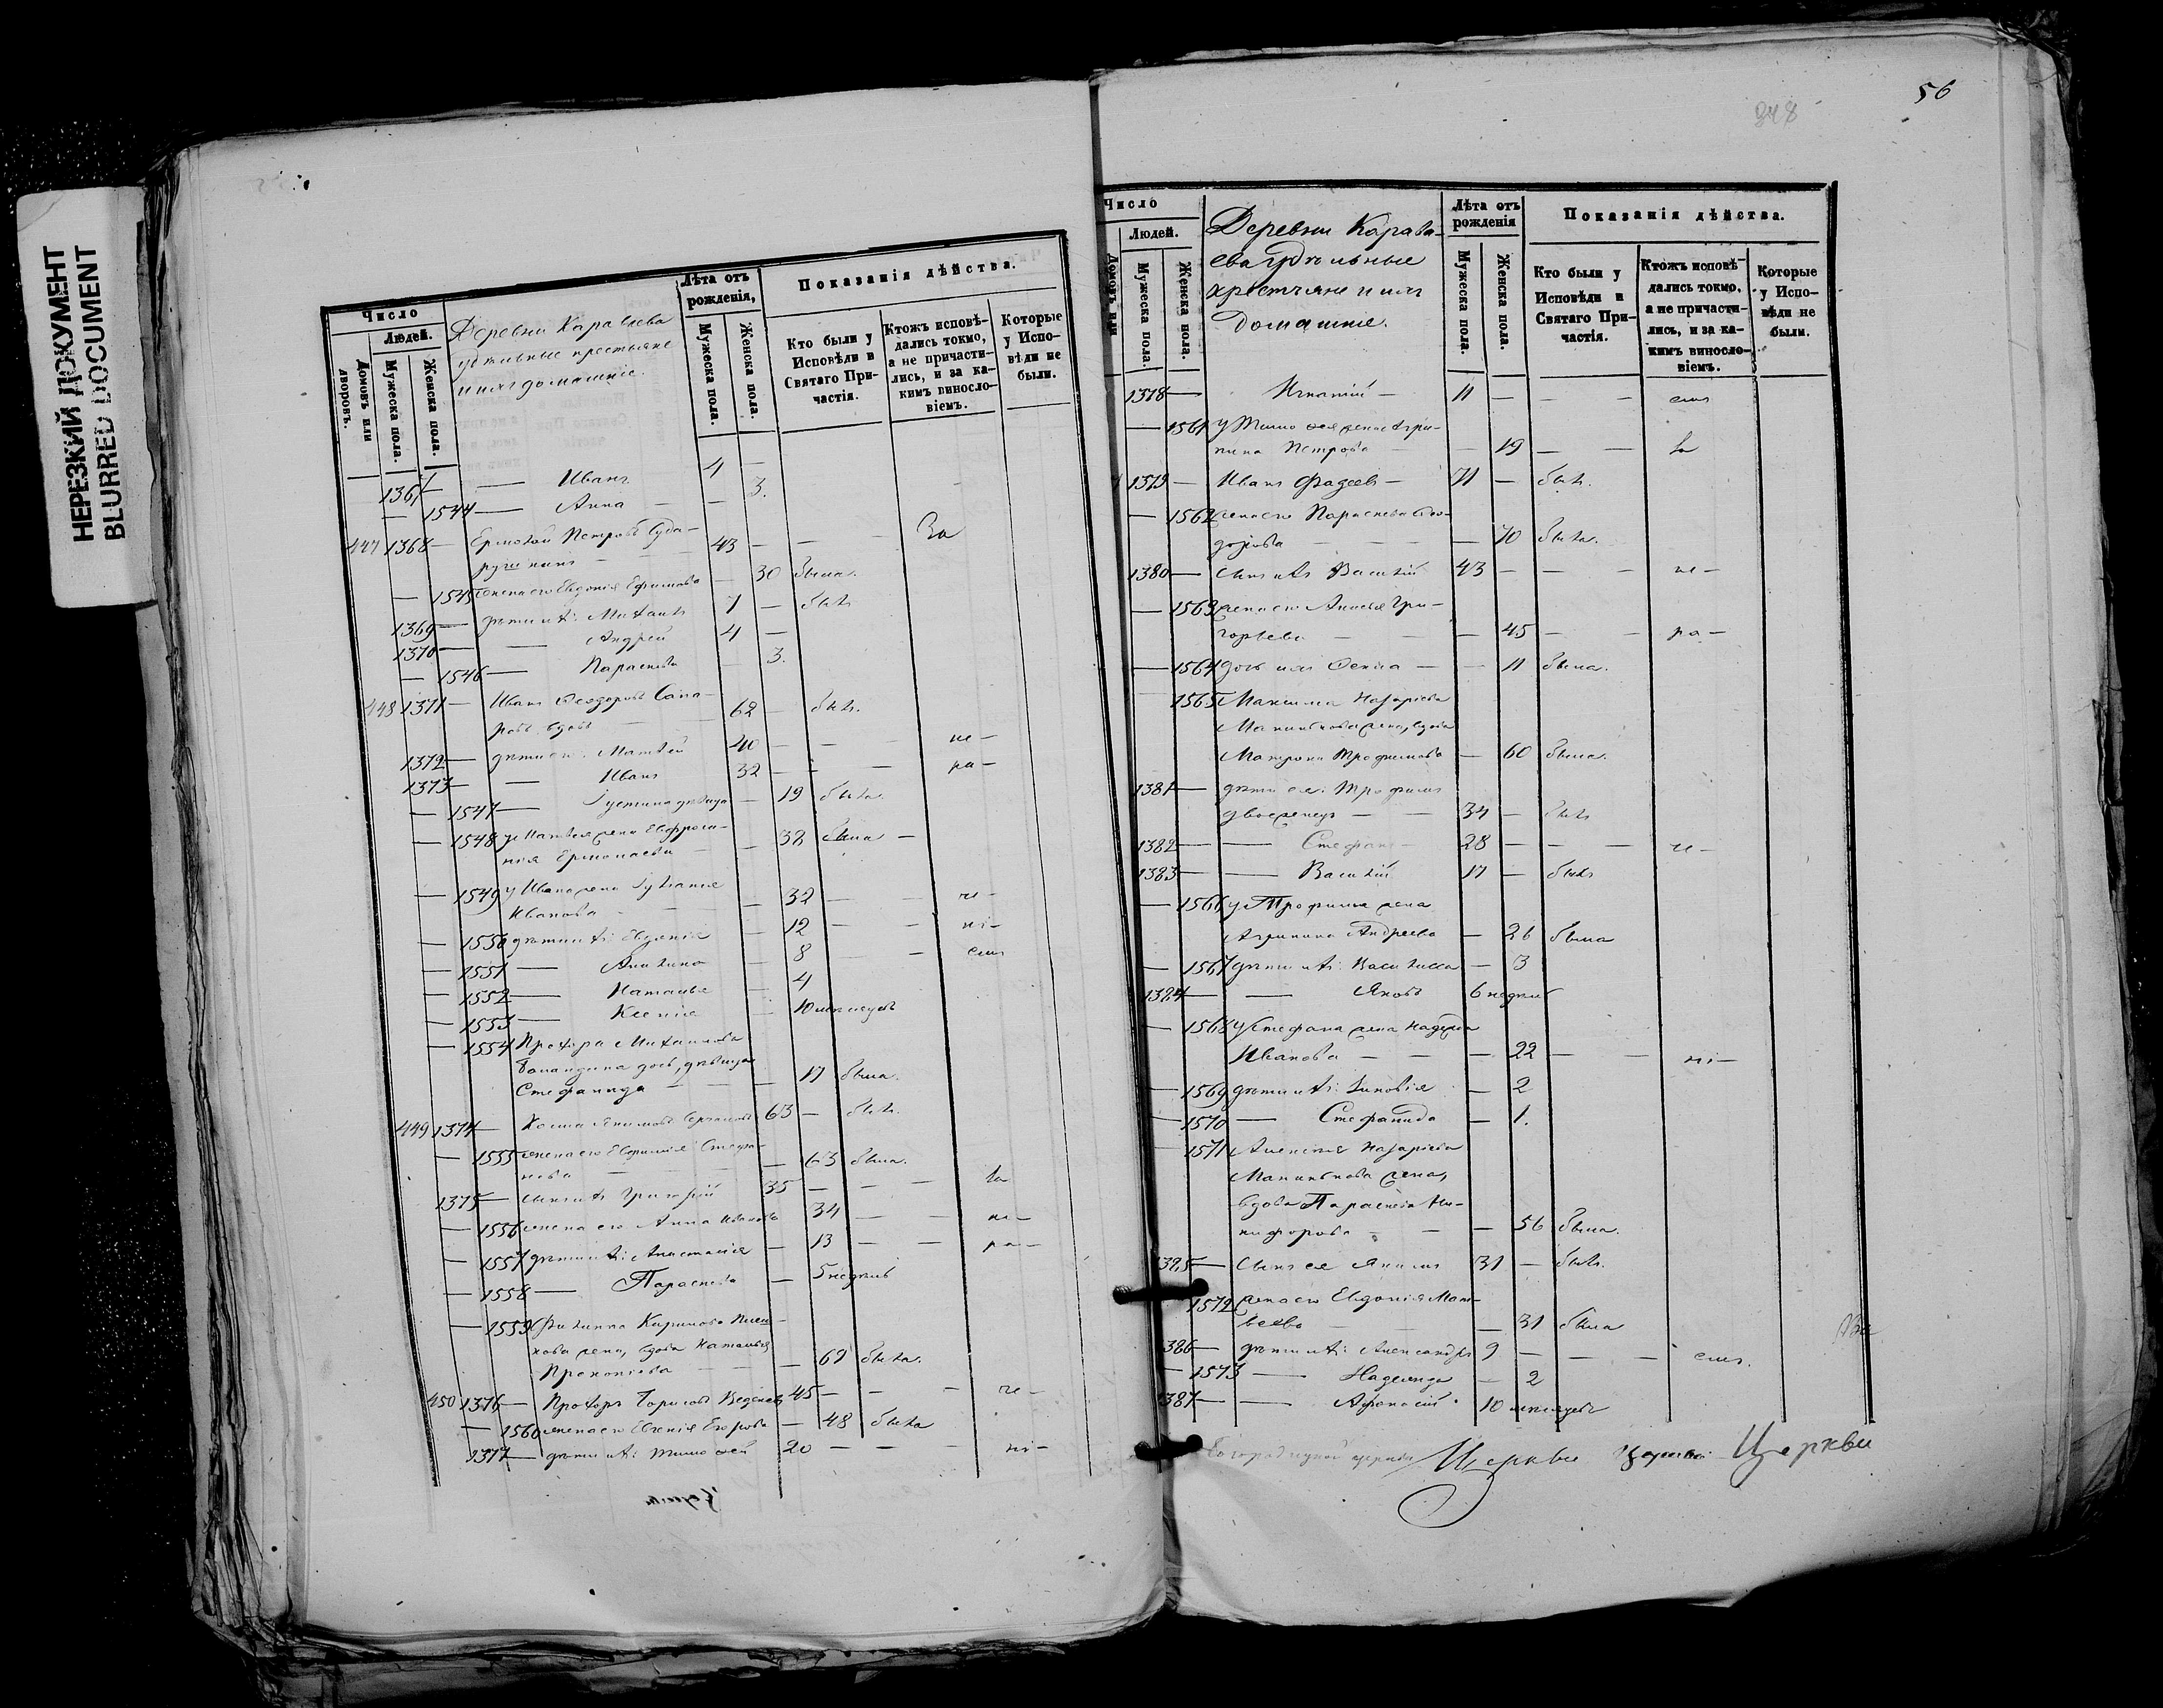 НЕРЕЗКИЙ ДОКУМЕНТ
BLURRED DOCUMENT
Число
Людей.
Домовъ или дворовъ.
Мужеска пола.
Женска пола.
Деревни Караваева
удѣльные крестьяне
и ихъ домашніе.
Лѣта отъ рожденія,
Мужеска пола.
Женска пола.
Показанія дѣйства.
Кто были у Исповѣди и Святаго Причастія.
Ктожъ исповѣдались токмо, а не причастились, и за какимъ винословіемъ.
Которые у Исповѣди не были.
1367 — Иванъ 4 —
— 1544 — Анна — 3.
447 1368 — Ермолай Петровъ
43 — — За
— 1545 жена его Евдокія Ефимова — 30 была.
1369 — дѣти ихъ: Михаилъ 7 — былъ
1370 — Андрей 4 —
— 1546 — Параскева — 3.
448 1371 — Иванъ Ѳеодоровъ
вдовъ — 62 — былъ.
1372 — дѣти его: Матвей 40 — — не —
1373 — Иванъ 32 — — ра —
— 1547 — Іустина дѣвица — 19 была.
— 1548 у Матвея жена Евфроси-
нія Ермолаева — 32 была —
— 1549 у Ивана жена Іуліанія
Иванова — 32 — — не —
— 1550 дѣти ихъ: Евдокія — 12 — — ні —
— 1551 — Акилина — 8 — — емъ
— 1552 — Наталья — 4
— 1553 — Ксенія — 10 мѣсяцевъ
— 1554 Прохора Михайлова
дочь, дѣвица
Стефанида — 17 была.
449 1374 — Козма 63 — былъ.
— 1555 жена его Евфимія Стефа-
нова — 63 была.
1375 — сынъ ихъ Григорій 35 — — за
— 1556 жена его Анна Иванова 34 — — не —
— 1557 дѣти ихъ: Анастасія — 13 — — ра —
— 1558 — Параскева — 5 недѣль
— 1559 Филиппа
жена, вдова Наталья
Прокопіева — 67 была.
450 1376 — Прохоръ Борисовъ 45 — — не —
— 1560 жена его Евгенія Егорова — 48 была
1377 — дѣти ихъ: Тимоѳей 20 — — ні —
56
348
Число
Людей.
Домовъ или
Мужеска пола.
Женска пола.
Деревни Карава-
ева удѣльные
крестьяне и ихъ
домашніе.
Лѣта отъ рожденія
Мужеска пола.
Женска пола.
Показанія дѣйства.
Кто были у Исповѣди и Святаго Причастія.
Ктожъ исповѣдались токмо, а не причастились, и за какимъ винословіемъ.
Которые у Исповѣди не были.
1378 — Игнатій — 11 — — — емъ
— 1561 у Тимоѳея жена Агри-
пина Петрова — 19 — — за
1379 — Иванъ Фадеевъ — 71 — былъ.
— 1562 жена его Параскева Ѳео-
дорова — — — 70 была.
1380 — сынъ ихъ Василій 43 — — — не —
— 1563 жена его Анисья Гри-
горьева — — — 45 — — ра —
— 1564 дочь ихъ Ѳекла — — 11 была.
1565 Максима Назарьева
жена, вдова
Матрона Трофимова — 60 была.
1381 — дѣти ея: Трофимъ
двоеженецъ — — 34 — былъ
1382 — Стефанъ — 28 — — — не —
1383 — Василій 17 — былъ
— 1566 у Трофима жена
Агрипина Андреева — 26 была
— 1567 дѣти ихъ: Василисса — 3
1384 — Яковъ 6 недѣль
— 1568 у Стефана жена Надежда
Иванова — — — 22 — — ні —
— 1569 дѣти ихъ: Зиновія — 2
— 1570 — Стефанида — 1.
— 1571 Алексея Назарьева
жена,
вдова Параскева Ни-
кифорова — — — 56 была.
1385 — Сынъ ея 31 — былъ.
1572 жена его Евдокія Мат-
веева — — — 31 была
386 — дѣти ихъ: Александръ 9 — — — емъ.
— 1573 — Надежда — 2
387 — Афанасій 10 мѣсяцевъ
Богородицкой церкви Церкви Церкви Церкви